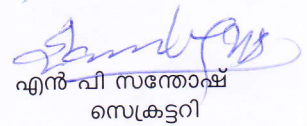 എൻ പി സന്തോഷ്
സെക്രട്ടറി